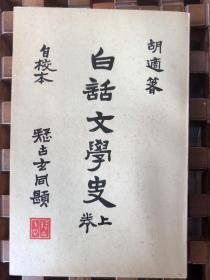 胡適著
白話文學史
上卷
自校本
疑古玄同題